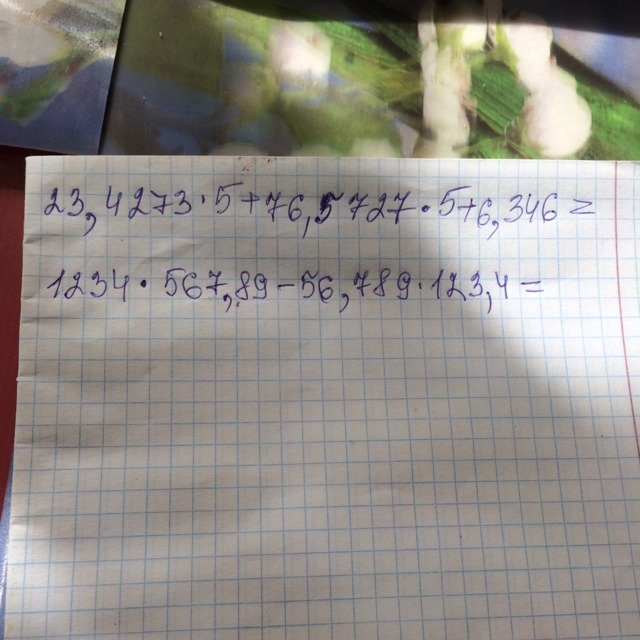 23,4273·5+76,5727·5+6,346=
1234·567,89-56,789·123,4=